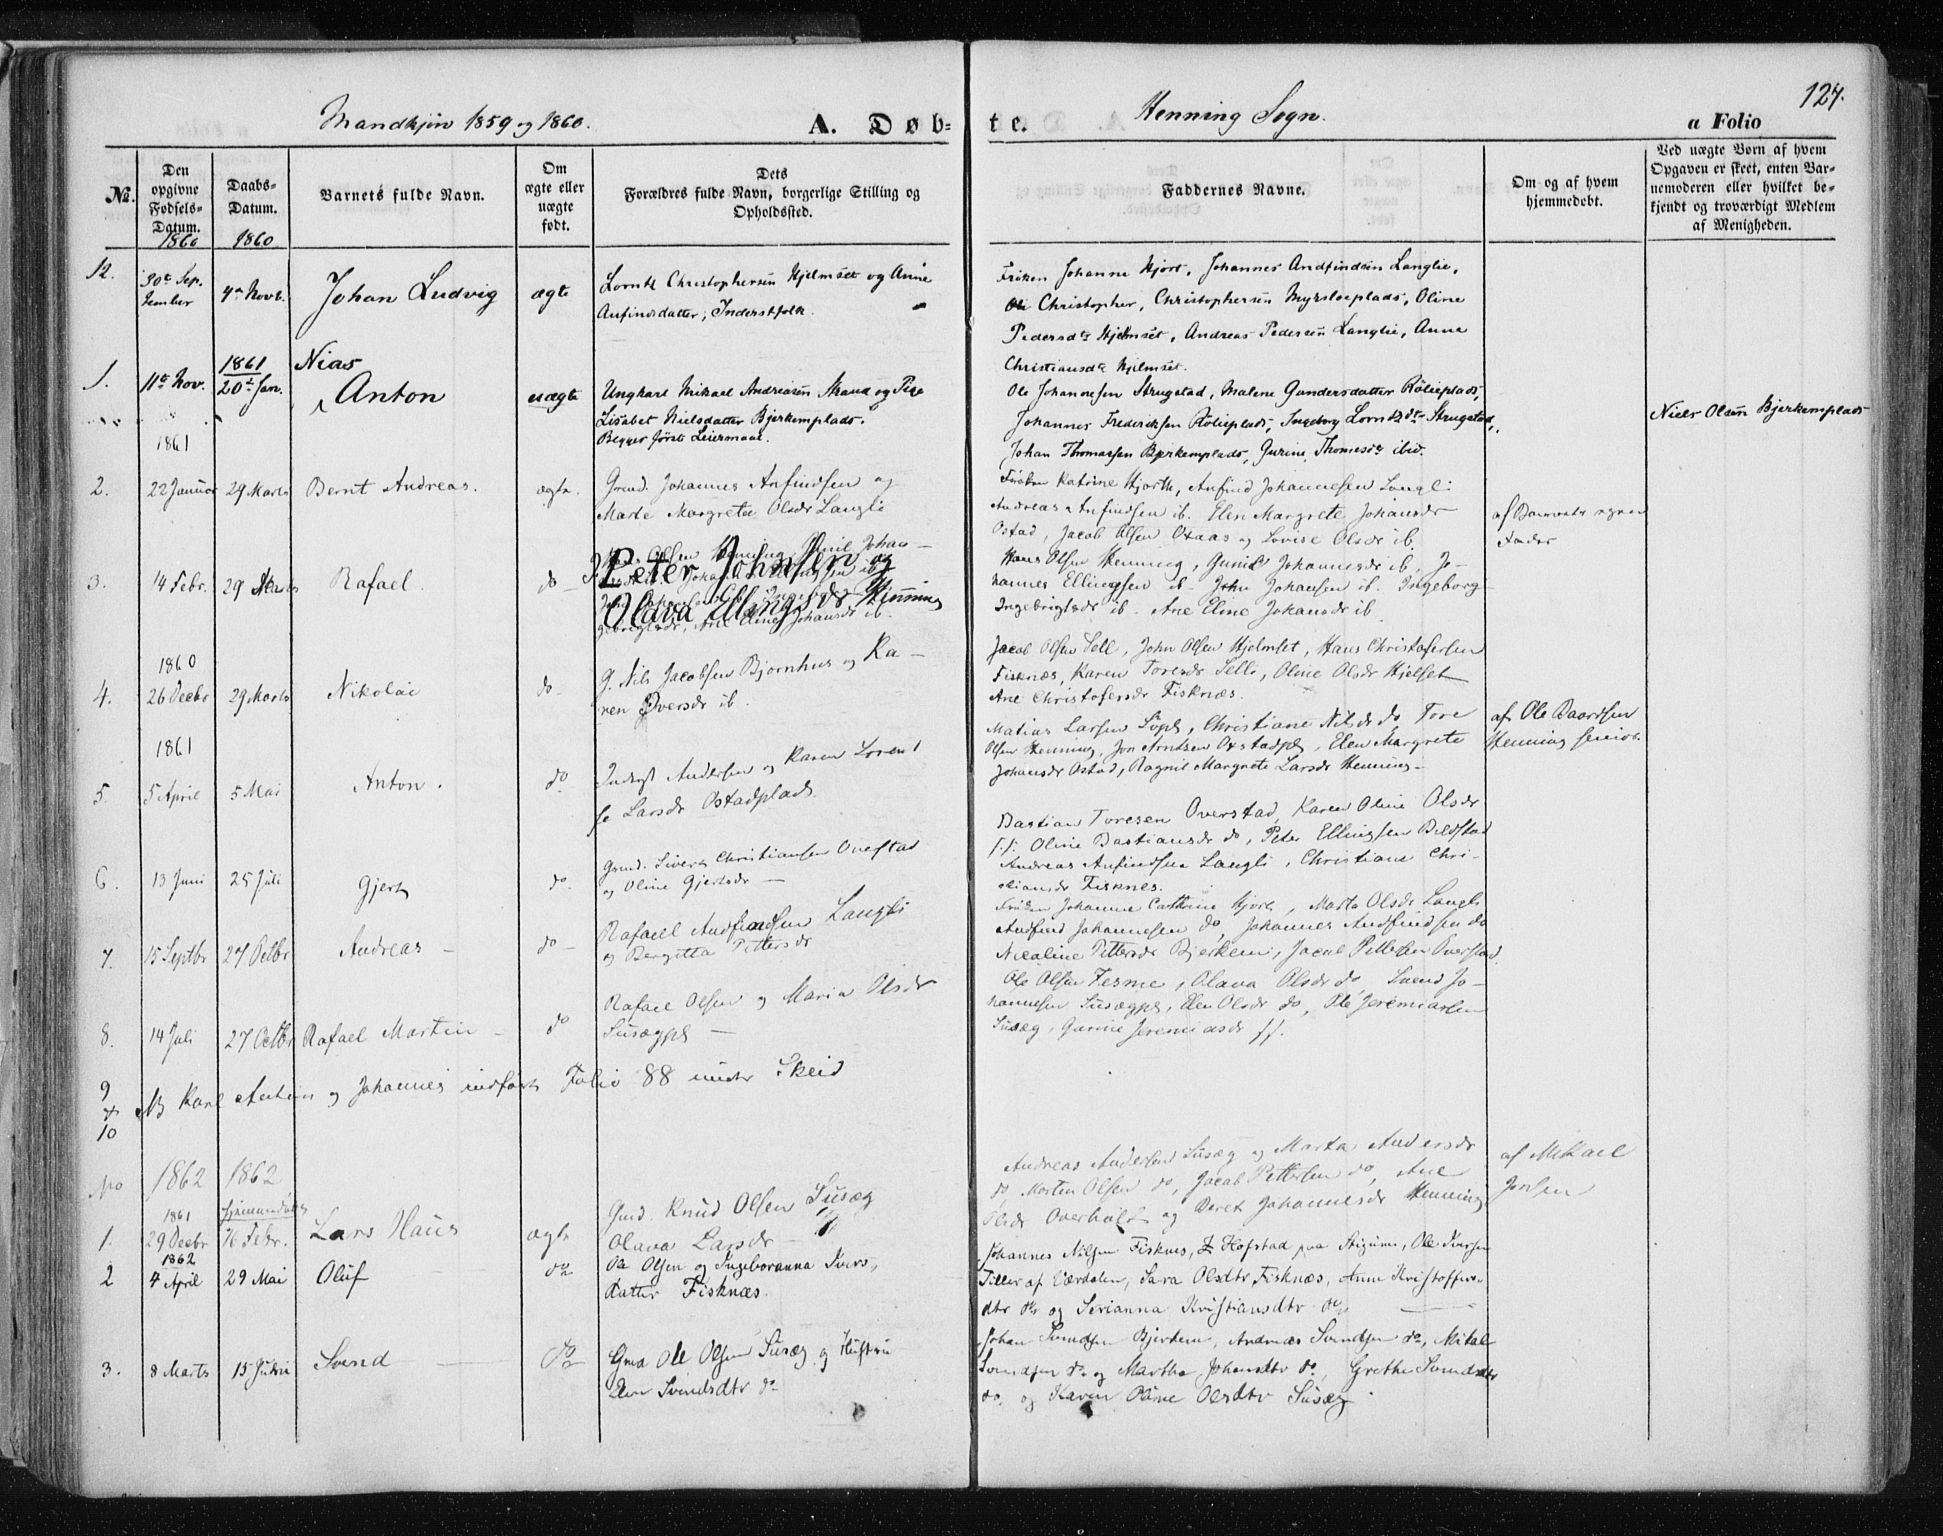 Mandkjøn 1859 og 1860.
A. Døb-
te.
Henning Sogn.
a Folio
127.
No.
Den opgivne Fødsels-Datum.
Daabs-Datum.
Barnets fulde Navn.
Om ægte eller uægte født.
Dets Forældres fulde Navn, borgerlige Stilling og Opholdssted.
Faddernes Navne.
Om og af hvem hjemmedøbt.
Ved uægte Børn af hvem Opgaven er skeet, enten Barnemoderen eller hvilket bekjendt og troværdigt Medlem af Menigheden.
1860
1860
12.
30te Sep-
tember
4de Novb.
Johan Ludvig
ægte
Lornts Christophersen Hjelmset og Anne
Anfinsdatter, Inderstfolk.
Frøken Johanne Hjort, Johannes Andfindsen Langlie,
Christopher Christophersen Myrsloeplads, Oline
Pedersdt Hjelmset, Andreas Pedersen Langlie, Anne
Christiansdt Hjelmset.
1.
11te Nov.
1861
20de Jan.
Nias
Anton
uægte
Ungkarl Mikael Andreasen Strand og Pige
Lisabet Nielsdatter Bjerkemplads.
Begges første Leiermaal.
Ole Johannesen Strugstad, Malene Gundersdatter Rølieplads,
Johannes Frederiksen Rølieplads, Ingeborg Lorntsdr Strugstad,
Johan Thomassen Bjerkemplads, Gurine Thomasdr ibid.
Niels Olsen Bjerkemplads
1861
2.
22 Januar
29 Marts
Bernt Andreas.
ægte.
Grmd. Johannes Anfindsen og
Marte Margrete Olsdr Langli
Frøken Katrine Hjorth, Anfind Johannesen Langli
Andreas Anfindsen ib. Elen Margrete Johansdr
Ostad, Jacob Olsen Oxaas og Lovise Olsdr ib.
af Barnets egen
Fader
3.
14 Febr.
29 Marts
Rafael
do
Peter Johnsen og
Olava Ellingsdr Henning
Hans Olsen Henning, Gunil Johannesdr ib, Jo-
hannes Ellingsen ib. John Johansen ib. Ingeborg
Ingebrigtsdr ib. Ane Eline Johansdr ib.
1860
4.
26 Decbr
29 Marts
Nikolai
do
G. Nils Jacobsen Bjørnhus og Ka-
ren Iversdr ib.
Jacob Olsen Sell, John Olsen Hjelmset, Hans Christofersen
Fisknæs, Karen Toresdr Selli, Oline Olsdr Hjelset
Ane Christofersdr Fisknæs.
1861
5
5 April
5 Mai
Anton.
do
Andersen og Karen Loren
se Larsdr Ostadplads
Matias Larsen Sögpl, Christiane Nilsdr do Tore
Olsen Henning, Jon Arntsen Oxstadpl, Elen Margrete
Johansdr Ostad, Ragnil Margrete Larsdr Henning
af Ole Baardsen
Henning senior
6.
13 Juni
25 Juli
Gjert
do.
Grmd. Sivert Christiansen Overstad
og Oline Gjertsdr
Bastian Toresen Overstad, Karen Oline Olsdr
Oline Bastiansdr do, Peter Ellingsen Buldstad
Andreas Anfindsen Langli, Christiane Chri-
stiansdr Fisknes.
7.
15 Septbr
27 Octbr
Andreas
do
Rafael Andfindsen Langli
og Bergitta Pettersdr
Frøken Johanne Cathrine Hjort, Marta Olsdr Langli
Andfind Johannesen do, Johannes Andfindsen do
Nicoline Pettersdr Bjerkem, Jacob Pettersen Overstad.
8.
14 Juli
27 Octbr
Rafael Martin
do
Rafael Olsen og Maria Olsdr
Susægpl
Ole Olsen Tesme, Olava Olsdr do, Svend Jo-
hannesen Susægpl, Elen Olsdr do, Ole Jeremiassen
Susæg, Gurine Jeremiasdr
9
10
NB Karl Anton og Johannes indført Folio 88 under Skeid
No
1862
1862
1.
1861
29 Decbr
hjemmedøbt
16 Febr.
Lars Haus
ægte
Gmd. Knud Olsen Susæg
Olava Larsdr
Andreas Andersen Susæg og Marta Andersdr
do, Morten Olsen do, Jacob Pettersen do, Ane
Olsdr Overholt og Beret Johannesdr Henning
af Mikael
Jonsen
2
1862
4 April
29 Mai
Oluf
do
Ole Olsen og Ingeboranna Ivers-
datter Fisknæs.
Johannes Nilsen Fisknes, Hofstad paa Stigum, Ole Iversen
Tiller af Værdalen, Sara Olsdtr Fisknæs, Anne Kristoffers-
dtr do og Serianna Kristiansdtr do
3.
8 Marts
15 Juni
Svend
do
Gmd Ole Olsen Susæg og Hustru
Elen Svendsdtr do
Johan Svendsen Bjerkem, Andreas Svendsen do, Mikal
Svendsen do og Martha Johansdtr do, Grethe Svendsdtr
do. og Karen Oline Olsdtr Susæg.